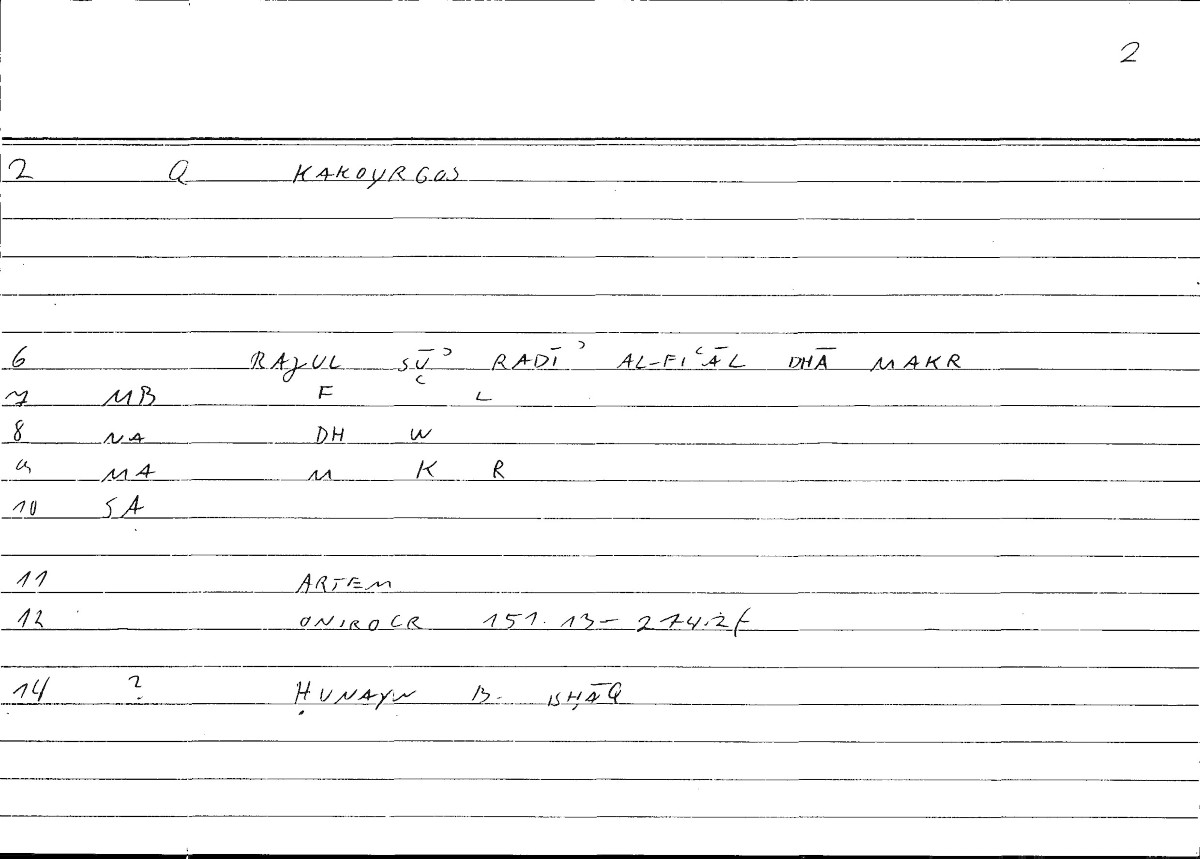 2
2 Q KAKOYRGOS
6 RAJUL SŪʾ RADĪʾ AL-FIʿĀL DHĀ MAKR
7 MB F ʿ L
8 NA DH W
9 MA M K R
10 SA
11 ARTEM
12 ONIROCR 151.13- 274.2f
14 ? ḤUNAYN B. ISḤĀQ